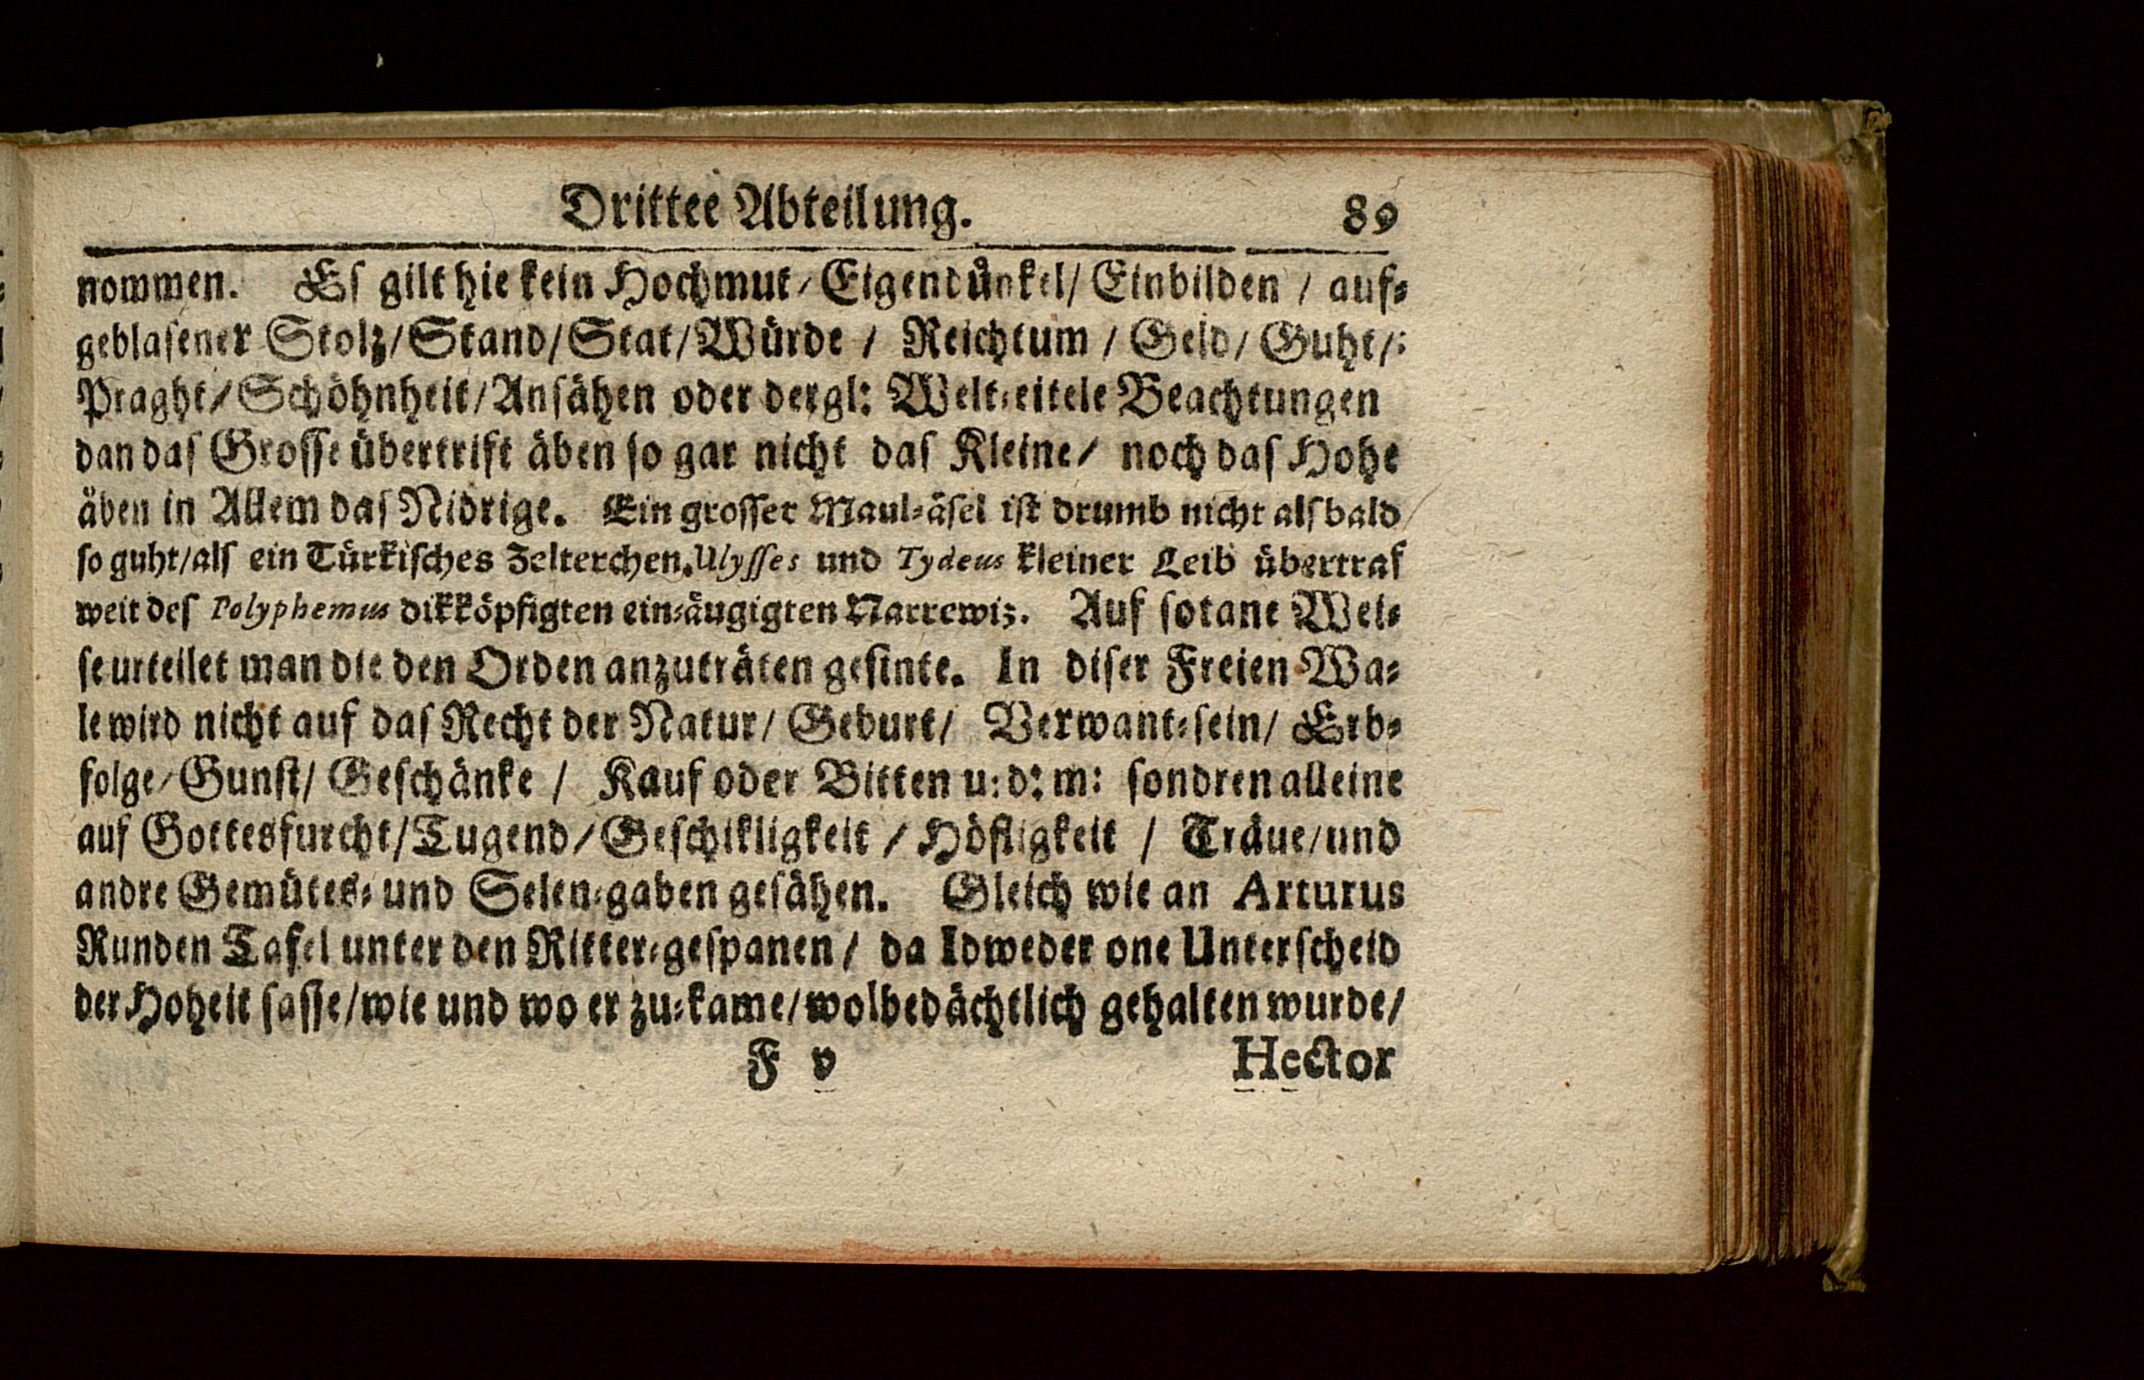 Drittee Abteilung. 89
nowmen. Es gilt hie kein Hochmut/Eigendůnkel/ Einbilden / auf⸗
geblasener Stolz/Stand/Stat/Würde / Reichtum / Geld/ Guht/:
Praght/Schöhnheit/Ansähen oder dergl: Welt⸗eitele Beachtungen
dan das Grosse übertrift äben so gar nicht das Kleine/ noch das Hohe
äben in Allem das Nidrige. Ein grosser Maul⸗äsel ist drumb nicht alsbald
so guht/als ein Türkisches Zelterchen. Ulysses und Tydeus kleiner Leib übertraf
weit des Polyphemus dikköpfigten ein⸗äugigten Narrewiz. Auf sotane Wei⸗
se urteilet man die den Orden anzuträten gesinte. In diser Freien Wa⸗
le wird nicht auf das Recht der Natur/ Geburt/ Verwant⸗sein/ Erb⸗
folge/Gunst/ Geschänke / Kauf oder Bitten u: d: m: sondren alleine
auf Gottesfurcht/Tugend/Geschikligkeit / Höfligkeit / Träue/und
andre Gemütes⸗ und Selen⸗gaben gesähen. Gleich wie an Arturus
Runden Tafel unter den Ritter⸗gespanen/ da Idweder one Unterscheid
der Hoheit sasse/wie und wo er zu⸗kame/wolbedächtlich gehalten wurde/
F v Hector